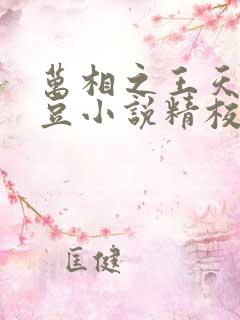 萬相之王天
豆小說精校
匡健